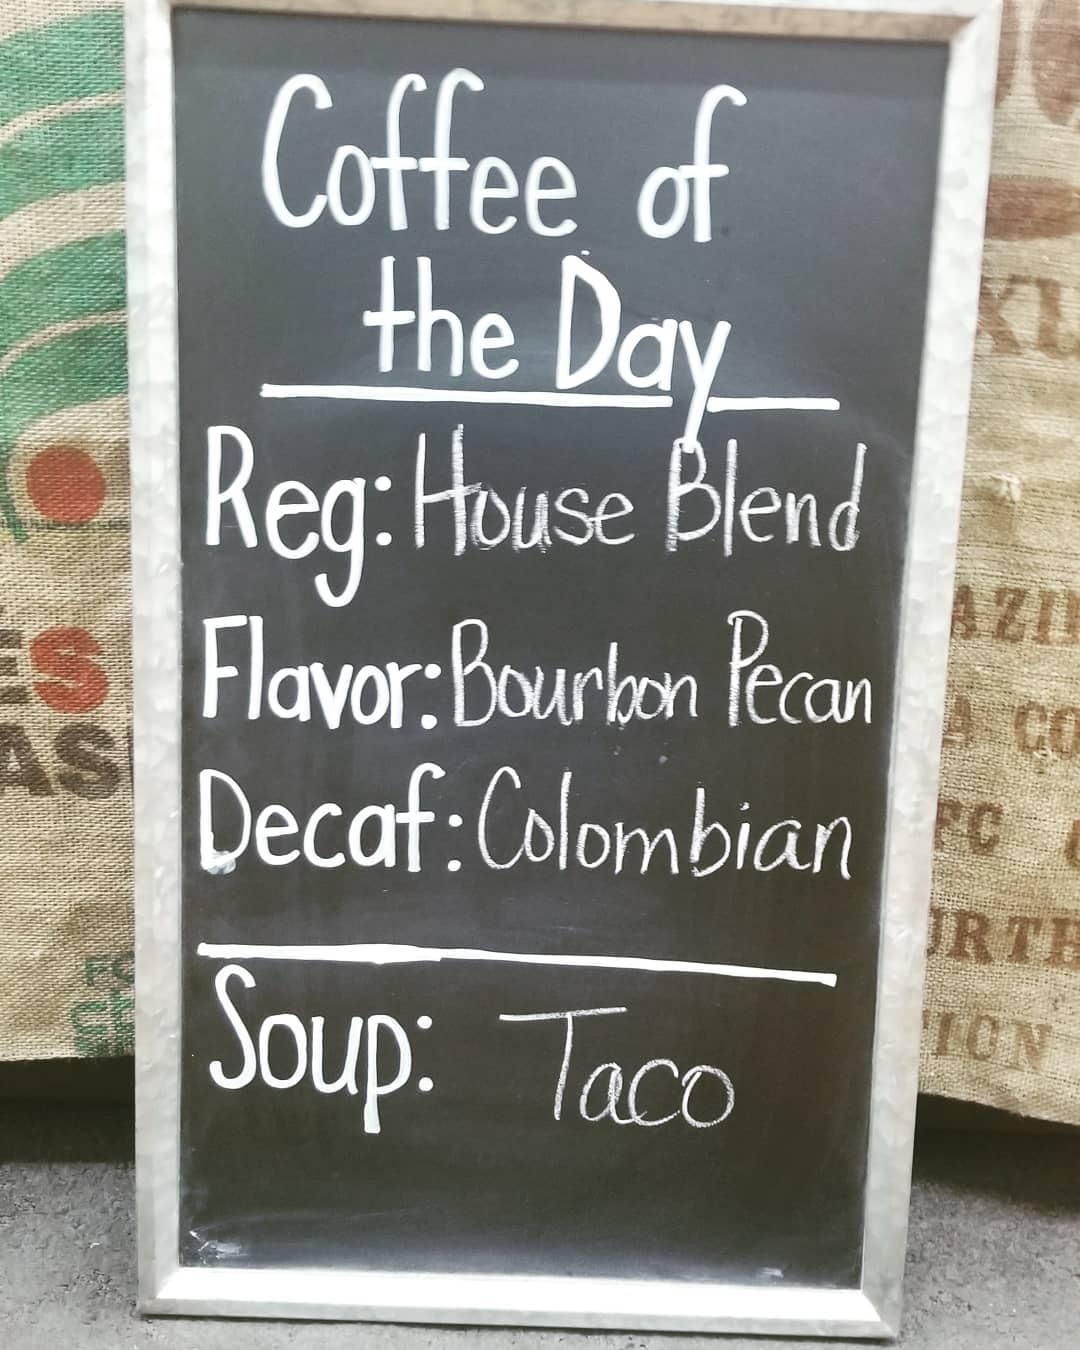 Coffee of
the Day
Reg: House Blend
Flavor: Bourbon Pecan
Decaf: Colombian
Soup: Taco